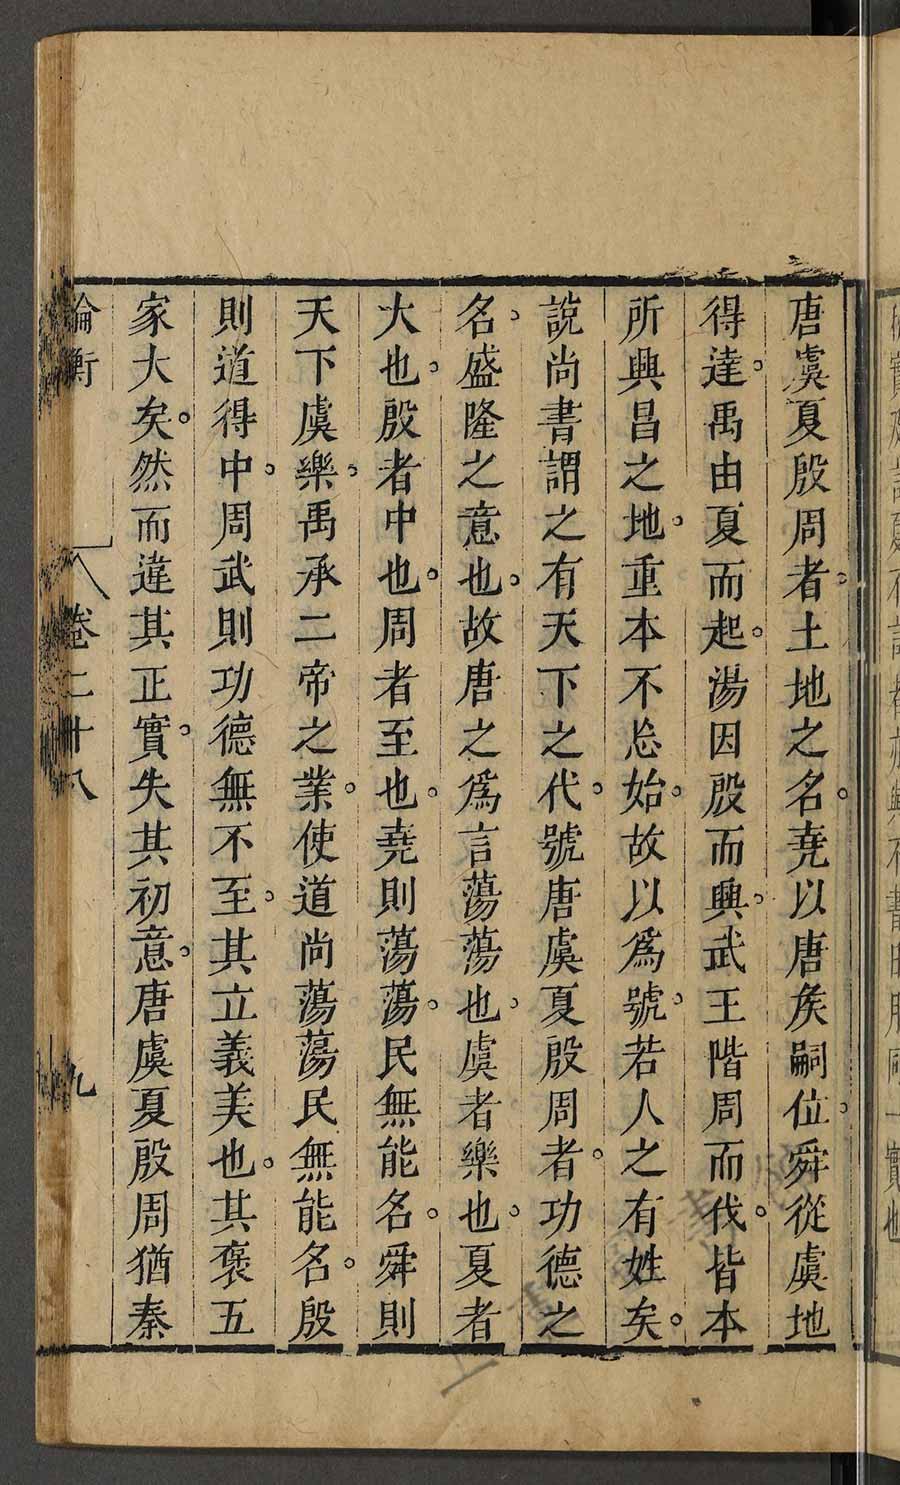 唐虞夏殷周者土地之名堯以唐矦嗣位舜從虞地
得達禹由夏而起湯因殷而興武王階周而伐皆本
所興昌之地重本不忘始故以為號若人之有姓矣
說尚書謂之有天下之代號唐虞夏殷周者功德之
名盛隆之意也故唐之為言蕩蕩也虞者樂也夏者
大也殷者中也周者至也堯則蕩蕩民無能名舜則
天下虞樂禹承二帝之業使道尚蕩蕩民無能名殷
則道得中周武則功德無不至其立義美也其褒五
家大矣然而違其正實失其初意唐虞夏殷周猶秦
論衡 卷二十八 九